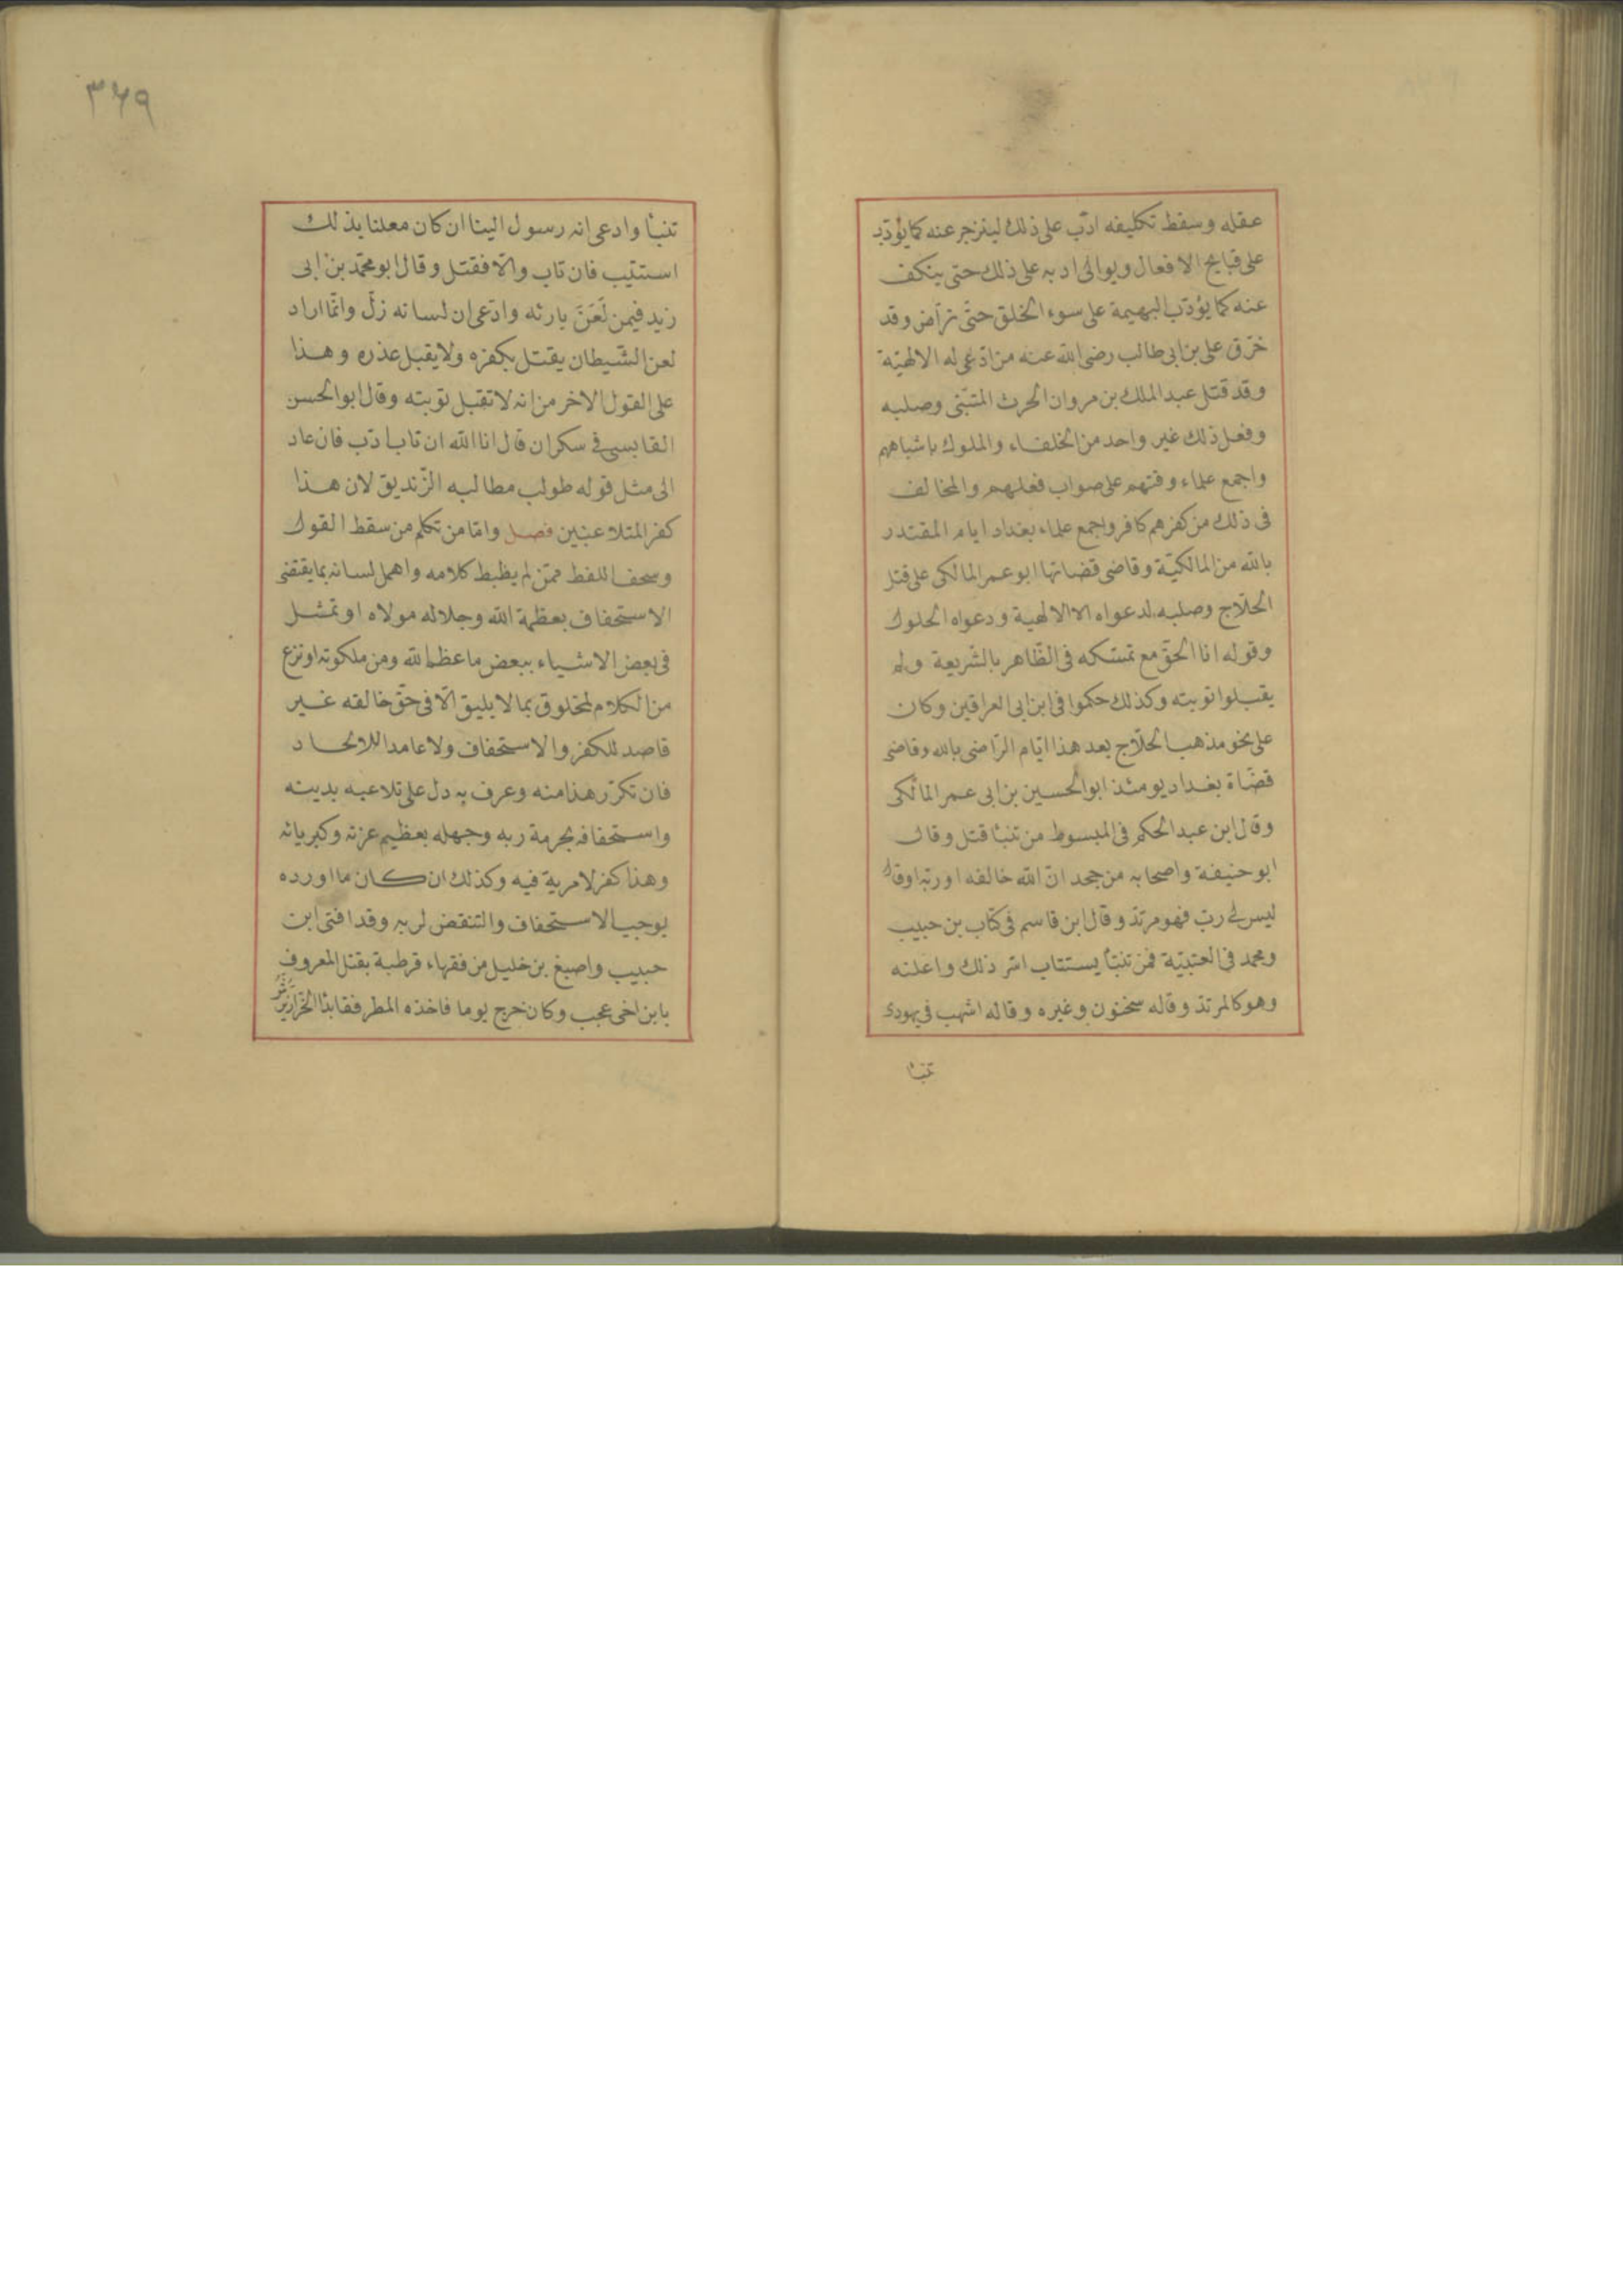 عقله وسقط تكليفه ادّب على ذلك لينزجر عنه كما يؤدّب
على قبايح الافعال ويوالى ادبه على ذلك حتى ينكف
عنه كما يؤدّب البهيمة على سوء الخلق حتّى تراض وقد
خرّق على بن ابى طالب رضى الله عنه من ادّعى له الالهيّة
وقد قتل عبد الملك بن مروان الحرث المتنبّى وصلبه
وفعل ذلك غير واحد من الخلفاء والملوك باشباههم
واجمع علماء وقتهم على صواب فعلهم والمخالف
فى ذلك من كفرهم كافر واجمع علماء بغداد ايام المقتدر
بالله من المالكيّة وقاضى قضاتها ابو عمر المالكى على قتل
الحلّاج وصلبه لدعواه الا الالهية ودعواه الحلول
وقوله انا الحقّ مع تمسّكه فى الظّاهر بالشّريعة ولم
يقبلوا توبته وكذلك حكموا فى ابن ابى العراقين وكان
على نحو مذهب الحلّاج بعد هذا ايّام الرّاضى بالله وقاضى
قضّاة بغداد يومئذ ابو الحسين بن ابى عمر المالكى
وقال ابن عبد الحكم فى المبسوط من تنبّا قتل وقال
ابو حنيفة واصحابه من جحد انّ الله خالقه او ربّه او قال
ليس لى ربّ فهو مرتدّ وقال ابن قاسم فى كتاب بن حبيب
ومحمد فى العتبيّة فمن تنبّأ يستتاب اسر ذلك واعلنه
وهو كالمرتدّ وقاله سحنون وغيره وقاله اشهب فى يهودى
تنبأ
٣٦٩
تنبأ وادعى انه رسول الينا ان كان معلنا بذلك
استتيب فان تاب والّا فقتل وقال ابو محمّد بن ابى
زيد فيمن لَعَنَ بارئه وادّعى ان لسانه زلّ وانّما اراد
لعن الشّيطان يقتل بكفره ولا يقبل عذره وهذا
على القول الاخر من انه لا تقبل توبته وقال ابو الحسن
القابسى فى سكران قال انا الله ان تاب ادّب فان عاد
الى مثل قوله طولب مطالبه الزّنديق لان هذا
كفر المتلاعبين فصل وامّا من تكلم من سقط القول
وسخف اللفظ ممّن لم يظبط كلامه واهمل لسانه بما يقتضى
الاستخفاف بعظمة الله وجلاله مولاه او تمثل
فى بعض الاشياء ببعض ما عظم الله ومن ملكوته او نزع
من الكلام لمخلوق بما لا يليق الّا فى حقّ خالقه غير
قاصد للكفر والاستخفاف ولا عامدا للالحاد
فان تكرّر هذا منه وعرف به دل على تلاعبه بدينه
واستخفافه بحرمة ربه وجهله بعظيم عزته وكبريائه
وهذا كفر لا مرية فيه وكذلك ان كان ما اورده
يوجب الاستخفاف والتنقض لربه وقد افتى ابن
حبيب واصبغ بن خليل من فقهاء قرطبة بقتل المعروف
بابن اخى عجب وكان خرج يوما فاخذه المطر فقال بدا الخرّاز يَرُشُّ